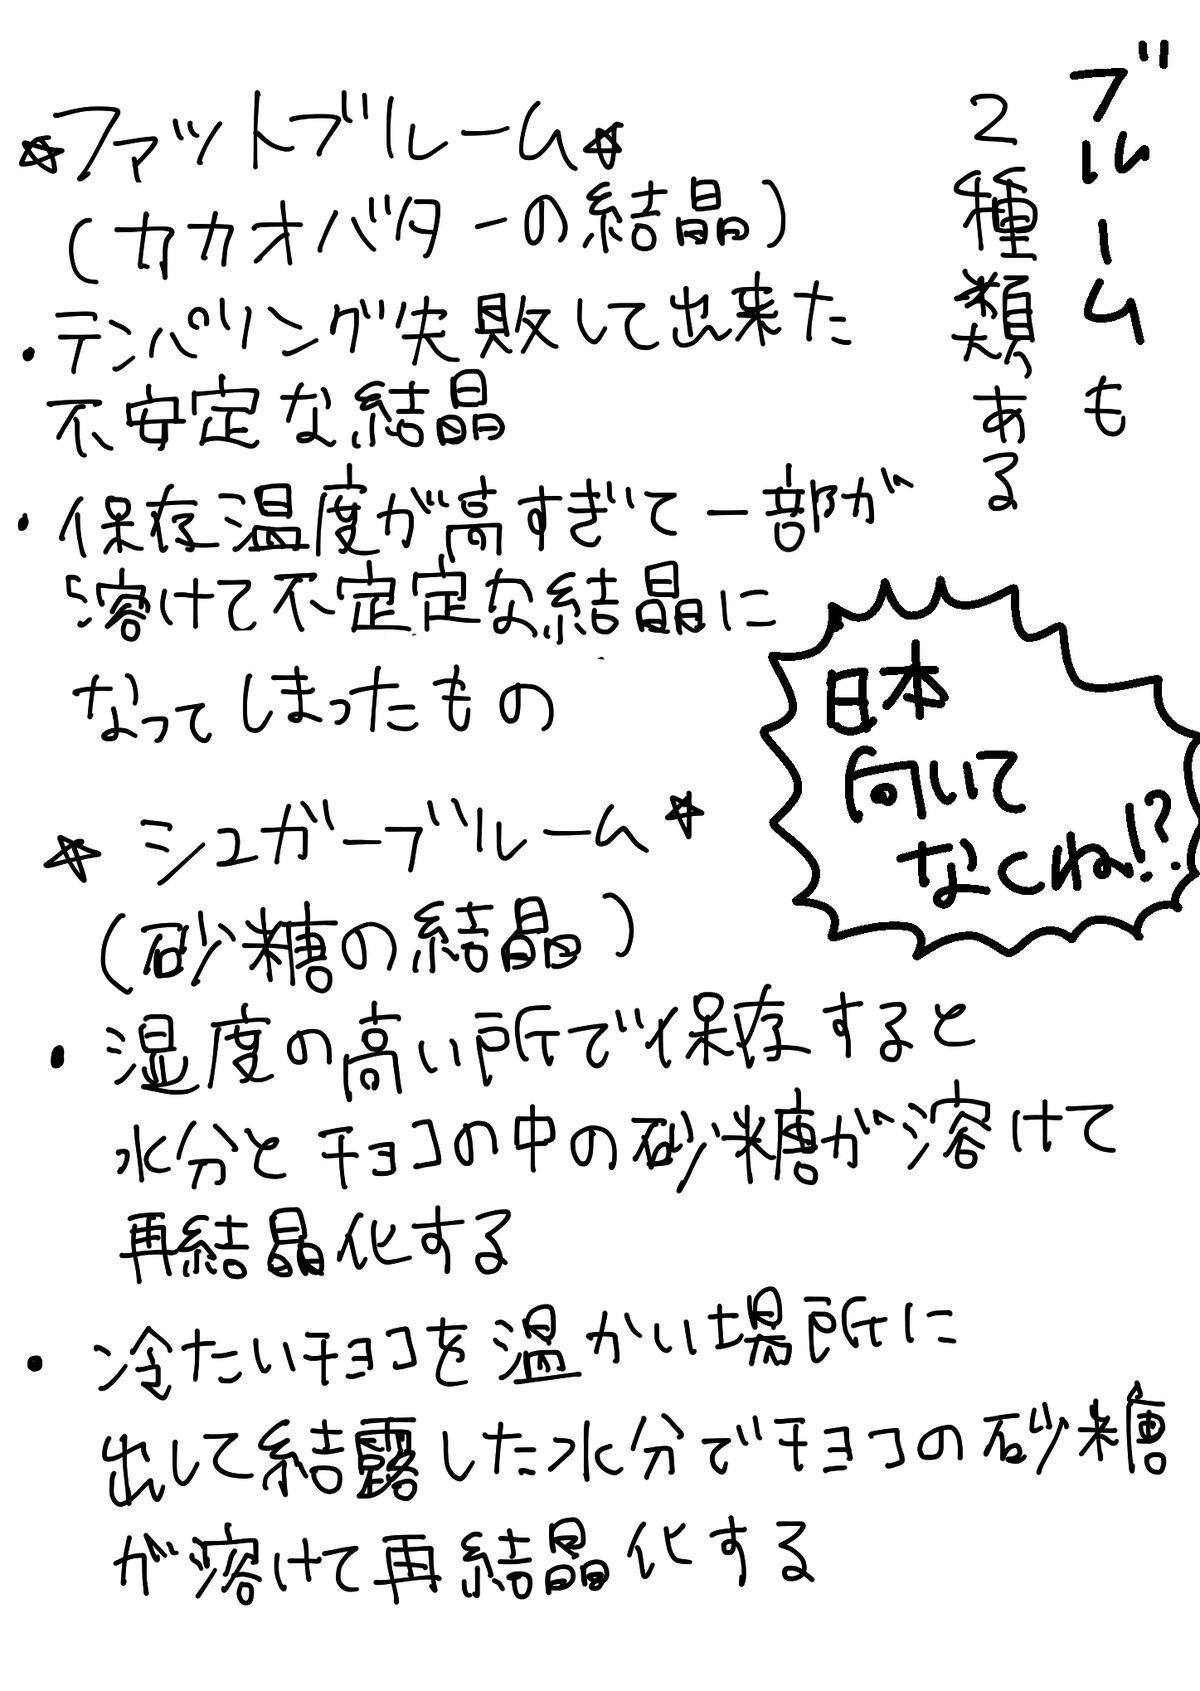 ブルームも
2種類ある
☆ファットブルーム☆
(カカオバターの結晶)
・テンパリング失敗して出来た
不安定な結晶
・保存温度が高すぎて一部が
溶けて不定定な結晶に
なってしまったもの
日本
向いて
なくね!?
☆シュガーブルーム☆
(砂糖の結晶)
・湿度の高い所で保存すると
水分とチョコの中の砂糖が溶けて
再結晶化する
・冷たいチョコを温かい場所に
出して結露した水分でチョコの砂糖
が溶けて再結晶化する